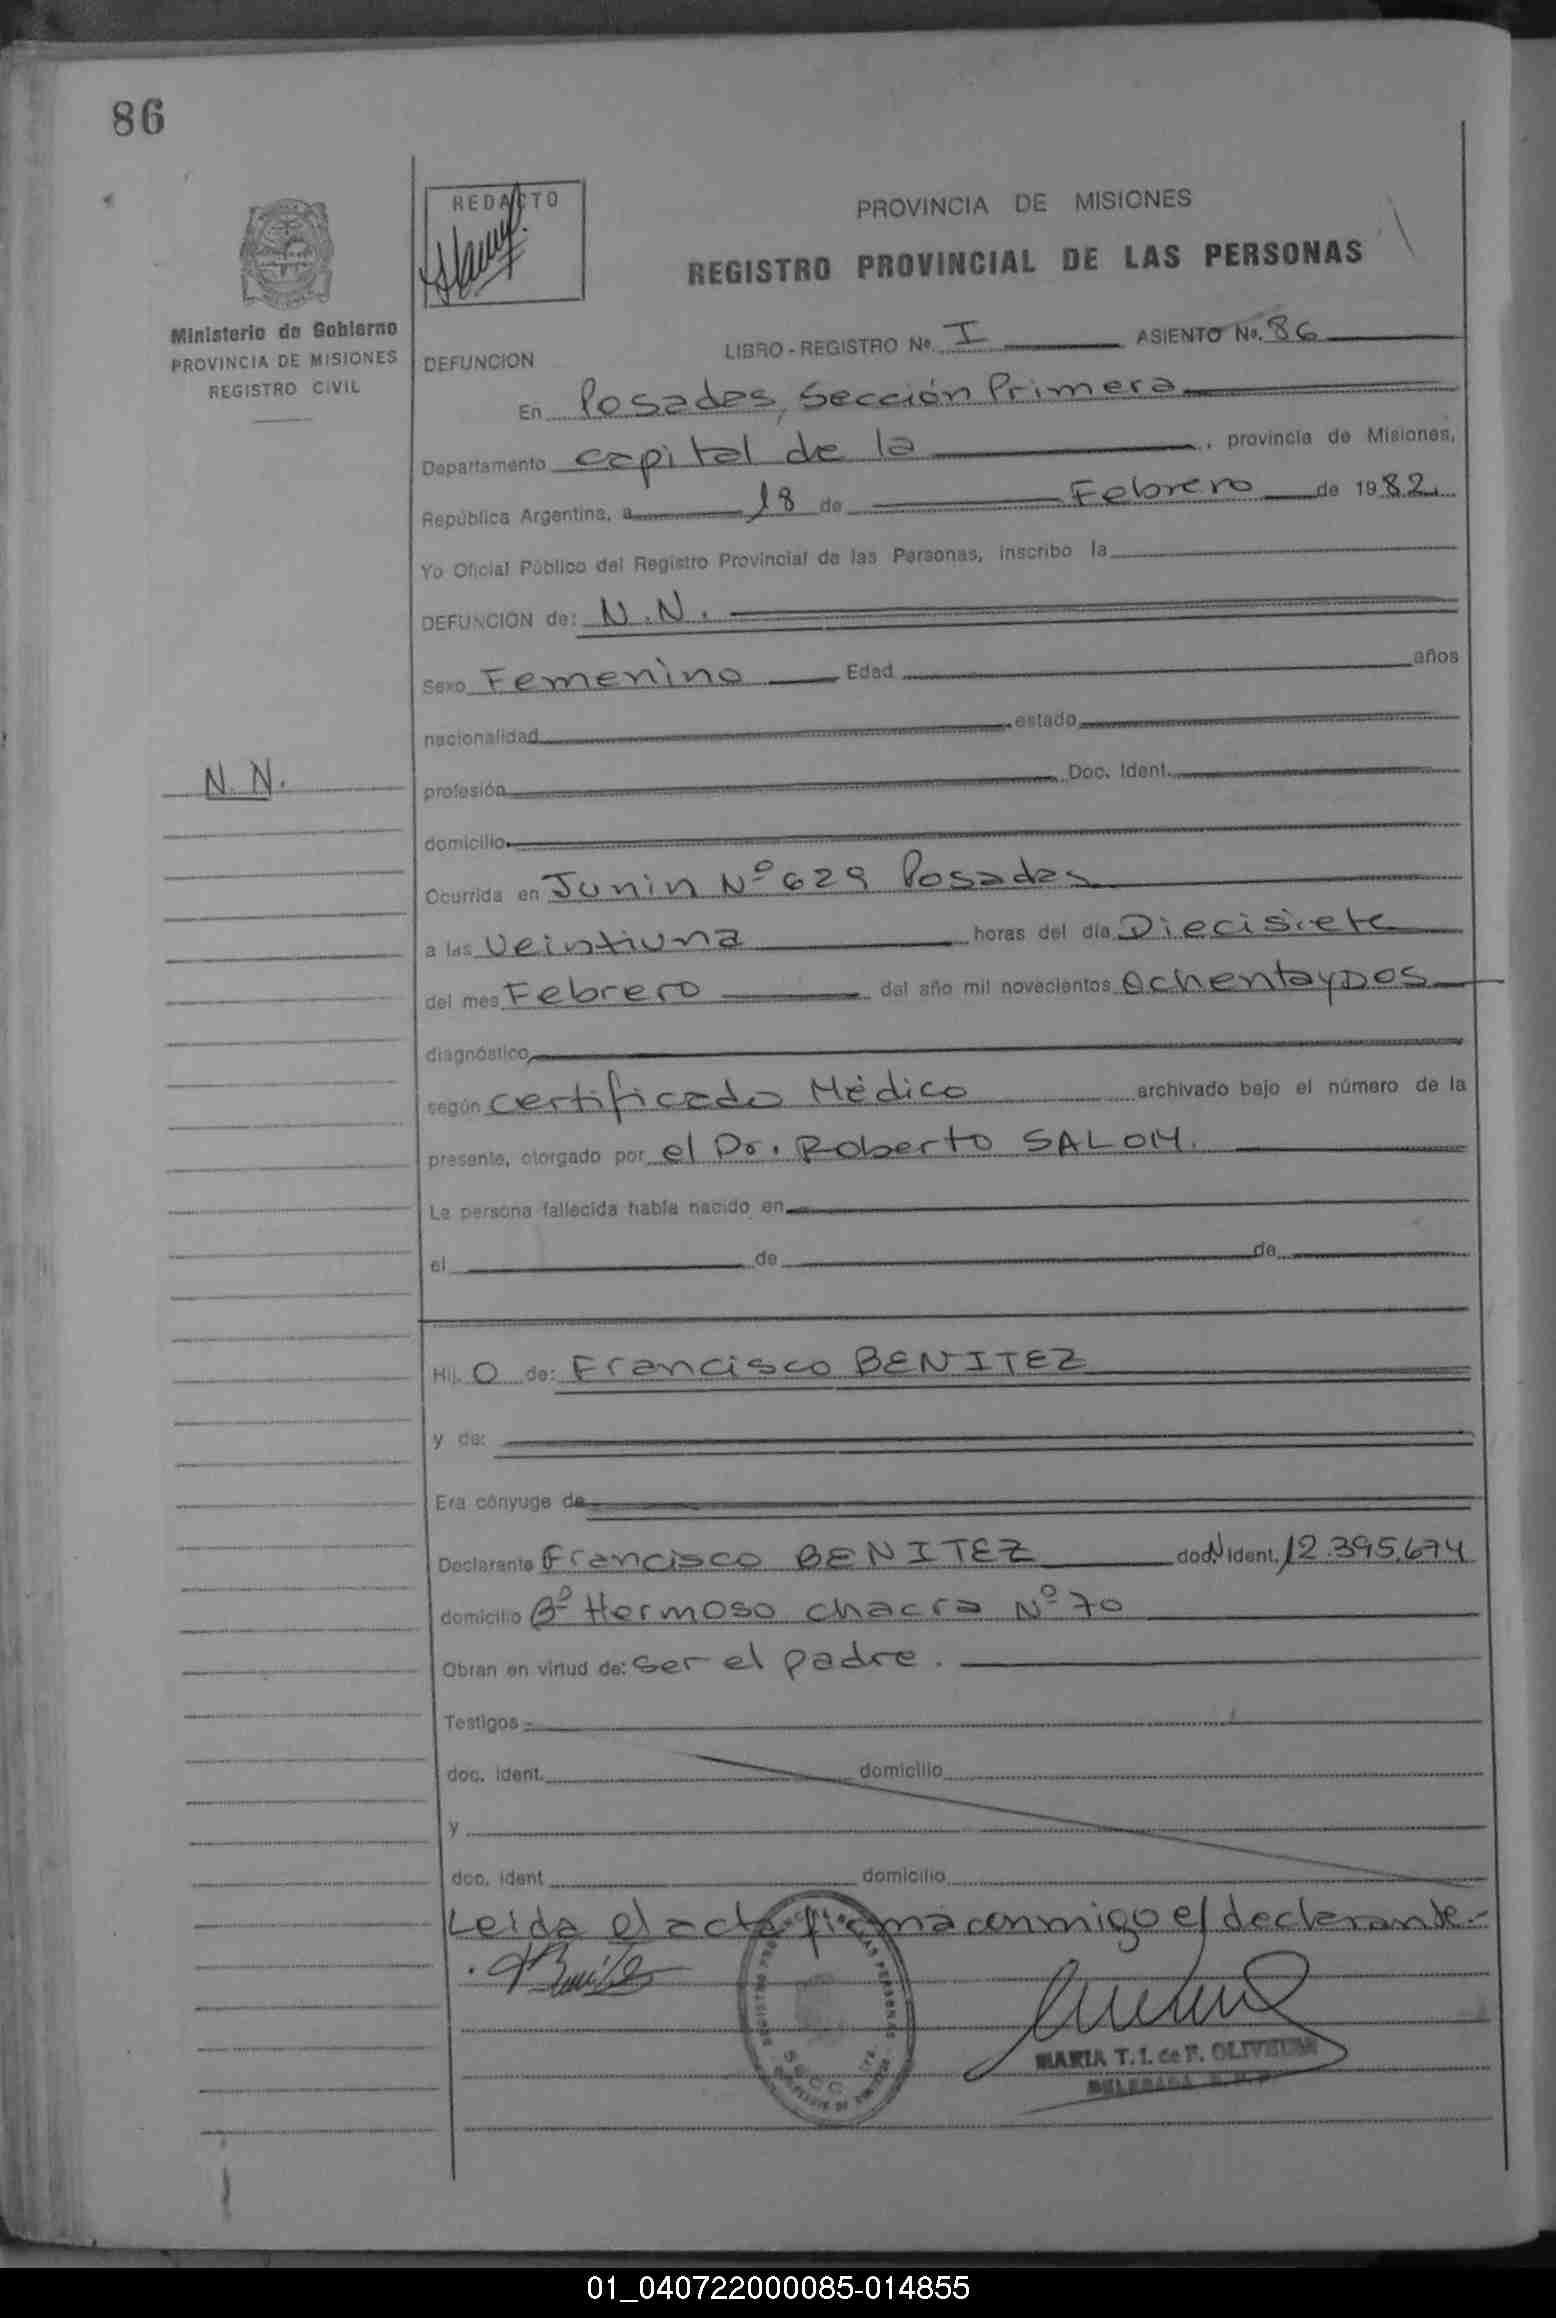 86
REDACTO
PROVINCIA DE MISIONES
REGISTRO PROVINCIAL DE LAS PERSONAS
Ministerio de Gobierno
PROVINCIA DE MISIONES
REGISTRO CIVIL
DEFUNCION
LIBRO - REGISTRO No. I ASIENTO No. 86
En Posadas, Sección Primera
Departamento capital de la , provincia de Misiones,
República Argentina, a 18 de Febrero de 1982.
Yo Oficial Público del Registro Provincial de las Personas, inscribo la
DEFUNCION de: N.N.
Sexo Femenino Edad años
nacionalidad estado
N.N.
profesión Doc. Ident.
domicilio
Ocurrida en Junin Nº 629 Posadas
a las Veintiuna horas del día Diecisiete
del mes Febrero del año mil novecientos Ochentaydos
diagnóstico
según certificado Médico archivado bajo el número de la
presente, otorgado por el Dr. Roberto SALOM.
La persona fallecida había nacido en
el de de
Hij O de: Francisco BENITEZ
y de:
Era cónyuge de
Declarante Francisco BENITEZ doc. Ident. 12.395.674
domicilio Bº Hermoso chacra Nº 70
Obran en virtud de: ser el padre.
Testigos
doc. ident. domicilio
y
doc. ident domicilio
Leida el acta firma conmigo el declarante.-
REGISTRO PROVINCIAL DE LAS PERSONAS
MARIA T. I. de F. OLIVEIRA
01_040722000085-014855